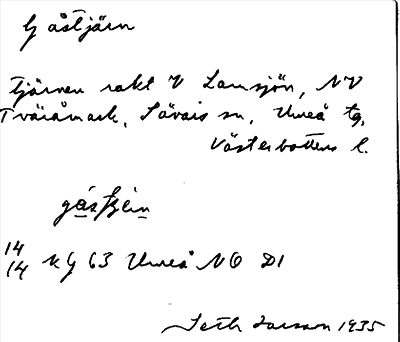 Gåstjärn
Tjärnen rakt V Lamsjön, NV
Tväråmark, Sävars sn, Umeå tg,
Västerbottens l.
14
14 KG 63 Umeå NO D1
Seth Larsson 1935